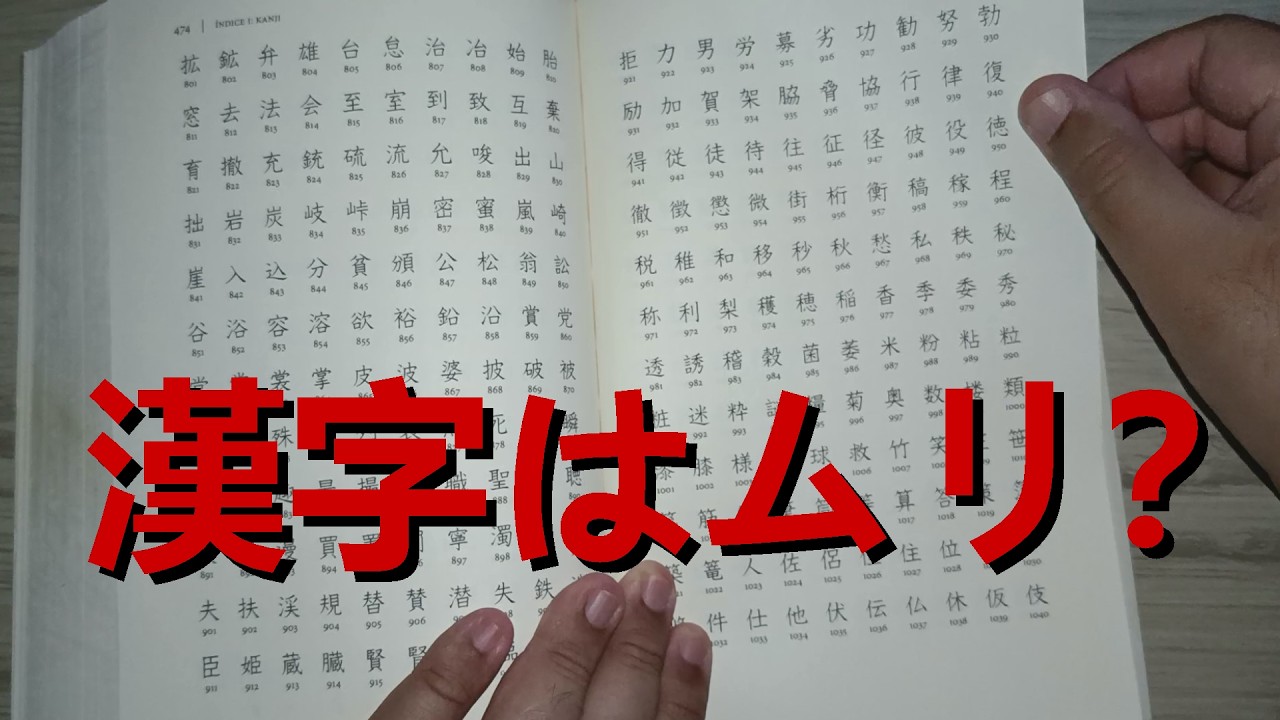 474 | ÍNDICE I: KANJI
拡 鉱 弁 雄 台 怠 治 冶 始 胎
801 802 803 804 805 806 807 808 809 810
窓 去 法 会 至 室 到 致 互 棄
811 812 813 814 815 816 817 818 819 820
育 撤 充 銃 硫 流 允 唆 出 山
821 822 823 824 825 826 827 828 829 830
拙 岩 炭 岐 峠 崩 密 蜜 嵐 崎
831 832 833 834 835 836 837 838 839 840
崖 入 込 分 貧 頒 公 松 翁 訟
841 842 843 844 845 846 847 848 849 850
谷 浴 容 溶 欲 裕 鉛 沿 賞 党
851 852 853 854 855 856 857 858 859 860
裳 掌 皮 波 婆 披 破 被
867 868 869 870
殊 死 瞬
878
職 聖 聴
888 890
買 寧 濁
891 892 893 894 897 898
夫 扶 渓 規 替 賛 潜 失 鉄
901 902 903 904 905 906 907
臣 姫 蔵 臓 賢
911 912 913 914 915
拒 力 男 労 募 劣 功 勧 努 勃
921 922 923 924 925 926 927 928 929 930
励 加 賀 架 脇 脅 協 行 律 復
931 932 933 934 935 936 937 938 939 940
得 従 徒 待 往 征 径 彼 役 徳
941 942 943 944 945 946 947 948 949 950
徹 徴 懲 微 街 桁 衡 稿 稼 程
951 952 953 954 955 956 957 958 959 960
税 稚 和 移 秒 秋 愁 私 秩 秘
961 962 963 964 965 966 967 968 969 970
称 利 梨 穫 穂 稲 香 季 委 秀
971 972 973 974 975 976 977 978 979 980
透 誘 稽 穀 菌 萎 米 粉 粘 粒
981 982 983 984 985 986 987 988 989 990
粧 迷 粋 糧 菊 奥 数 楼 類
992 993 996 997 998 1000
漆 膝 様 球 救 竹 笑 笹
1001 1002 1003 1006 1007 1008 1010
筋 算 答 策
1017 1018 1019
築 篭 人 佐 侶 住 位
1023 1024 1025 1026 1027 1028 1030
件 仕 他 伏 伝 仏 休 仮 伎
1032 1033 1034 1035 1036 1037 1038 1039 1040
漢字はムリ?